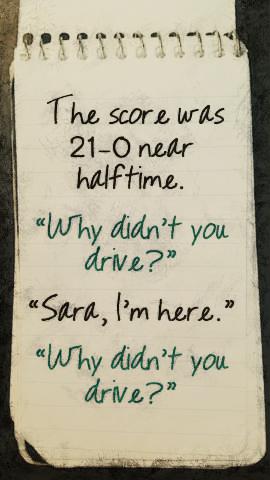 The score was
21-0 near
halftime.
“Why didn't you
drive?”
“Sara, I'm here.”
“Why didn't you
drive?”